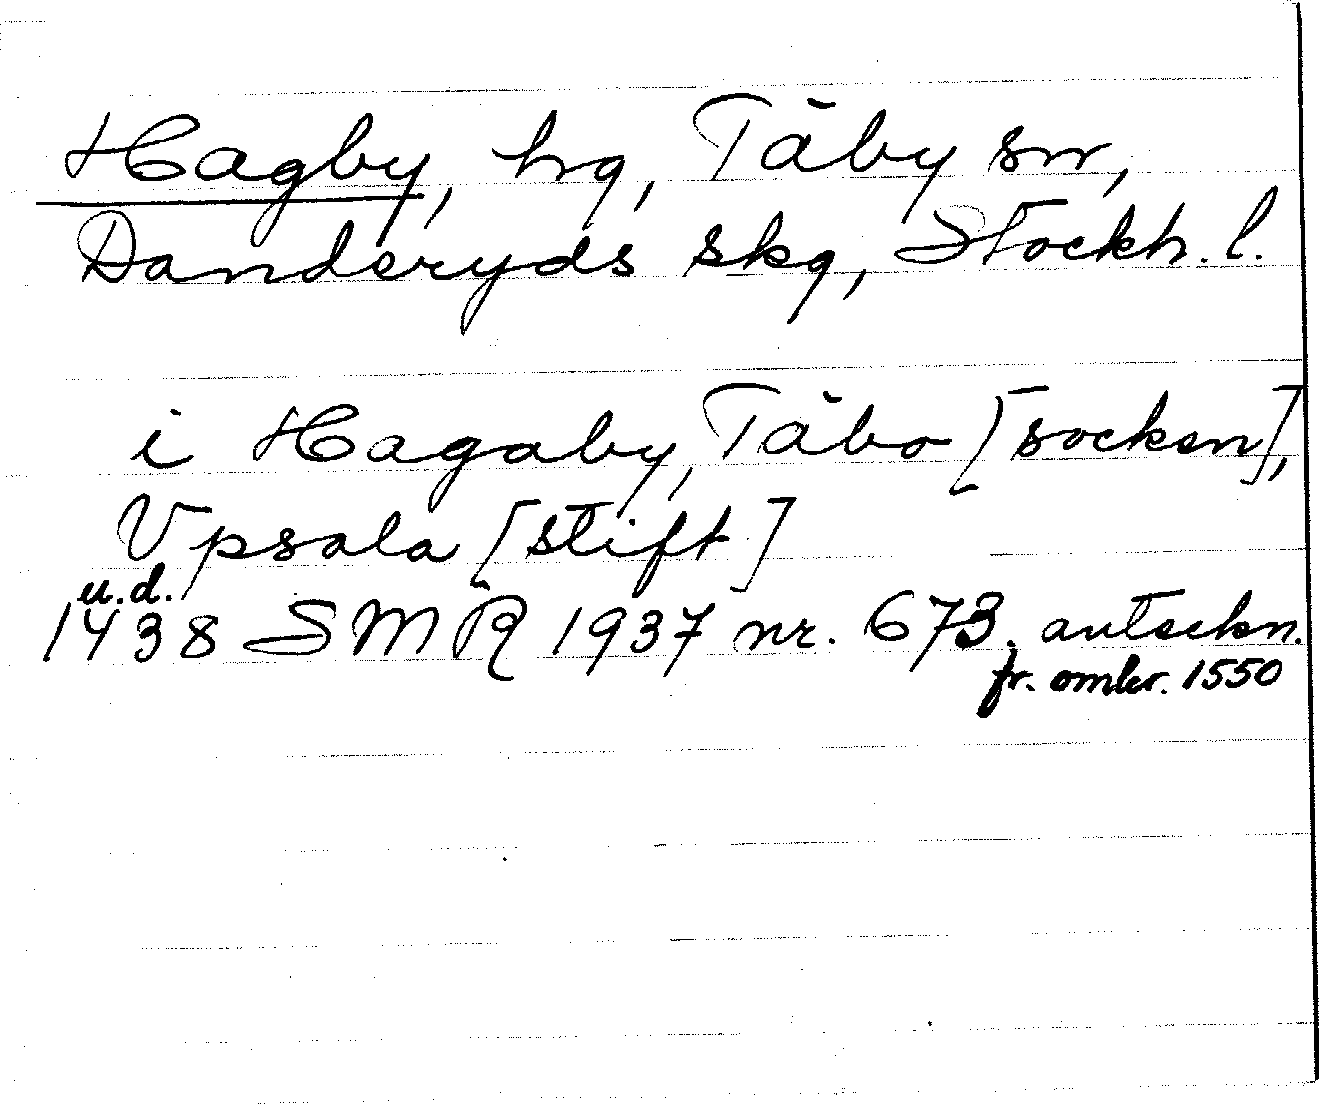 Hagby, hg, Täby sn,
Danderyds skg, Stockh. l.
i Hagaby, Täbo [socken],
Vpsala [stift]
u.d.
1438 SMR 1937 nr. 673. antekn.
fr. omkr. 1550